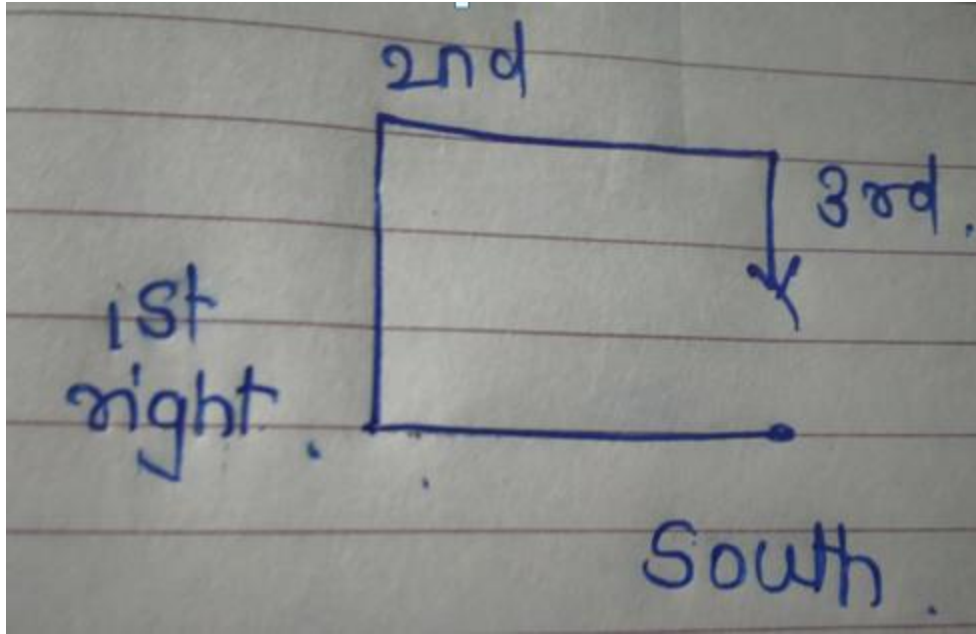 2nd
3rd.
1st
right.
South.